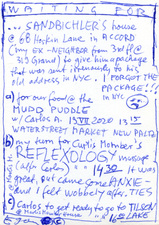 WAITING FOR
... SANDBICHLER'S house
@ 68 Hopkin Lane in ACCORD
(my EX-NEIGHBOR from 3rd fl @
319 Grand) to give him a package
that was sent previously to his
old address in NYC. I FORGOT THE
PACKAGE!!!
in NYC
a) for our food @ the
MUDD PUDDLE
w/ Carlos A. 13 VII 2020 13 15
WATER STREET MARKET NEW PALTZ
b) my turn for Curtis Member's
REFLEXOLOGY message
14 30. It was
great, but came some PANXIE
and I felt wobbely after. TIES
c) Carlos to get ready to go to TILSON
LAKE